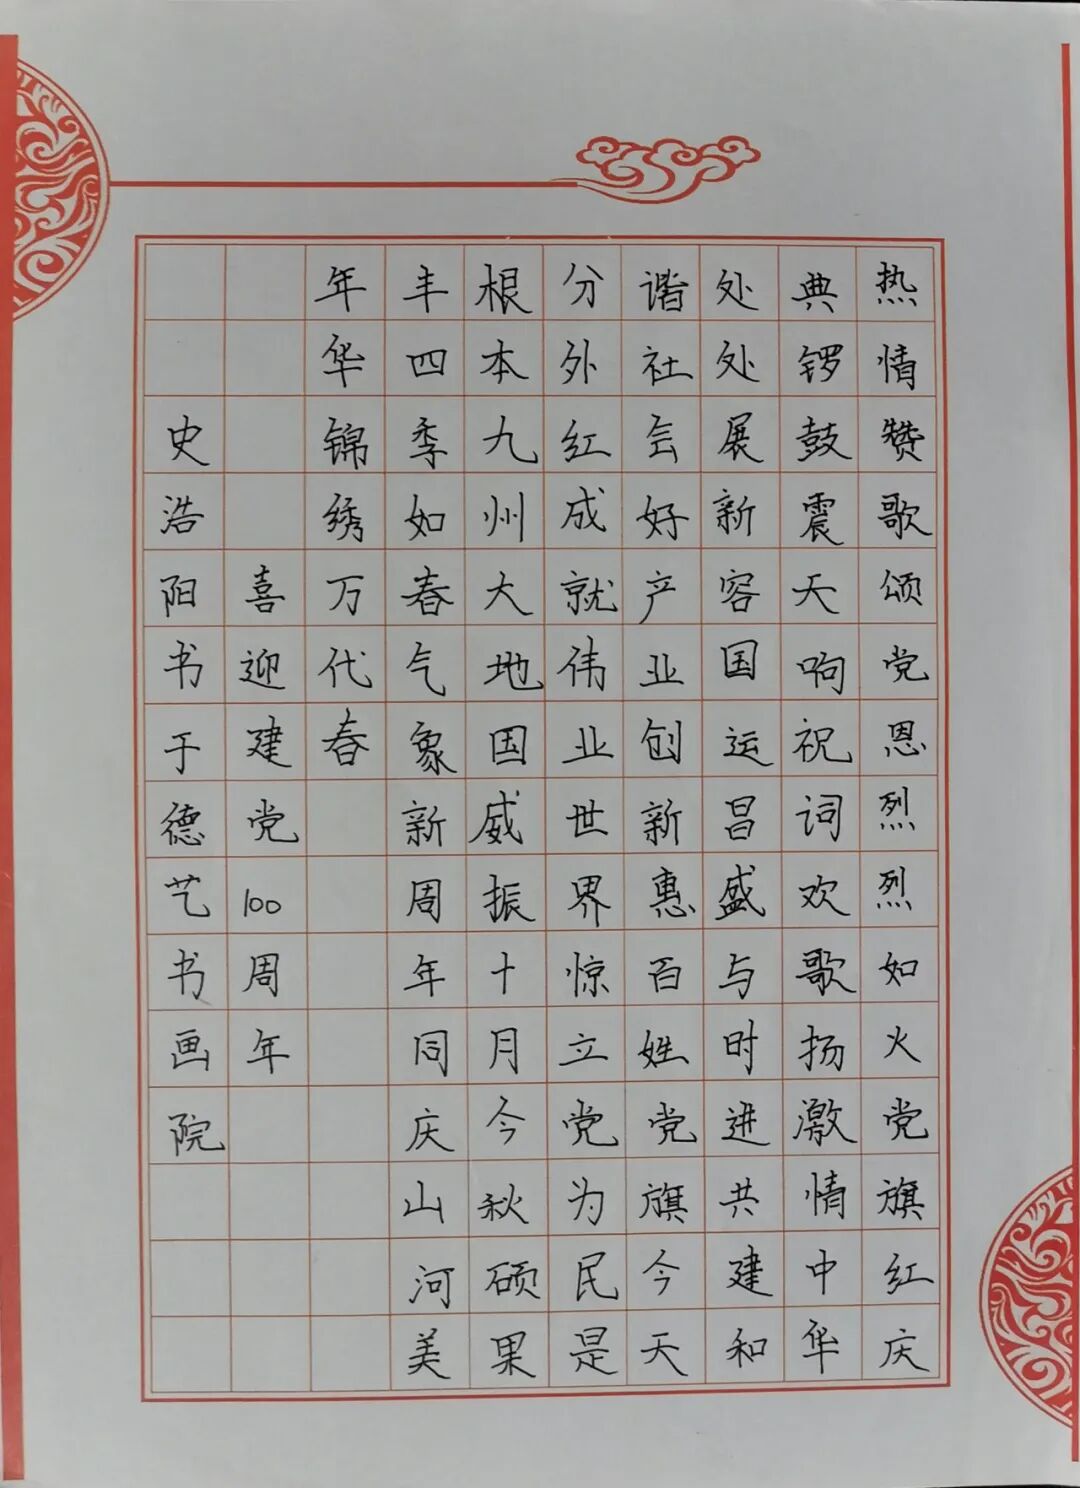 热情赞歌颂党恩烈烈如火党旗红庆
典锣鼓震天响祝词欢歌扬激情中华
处处展新容国运昌盛与时进共建和
谐社会好产业创新惠百姓党旗今天
分外红成就伟业世界惊立党为民是
根本九州大地国威振十月今秋硕果
丰四季如春气象新周年同庆山河美
年华锦绣万代春
喜迎建党100周年
史浩阳书于德艺书画院